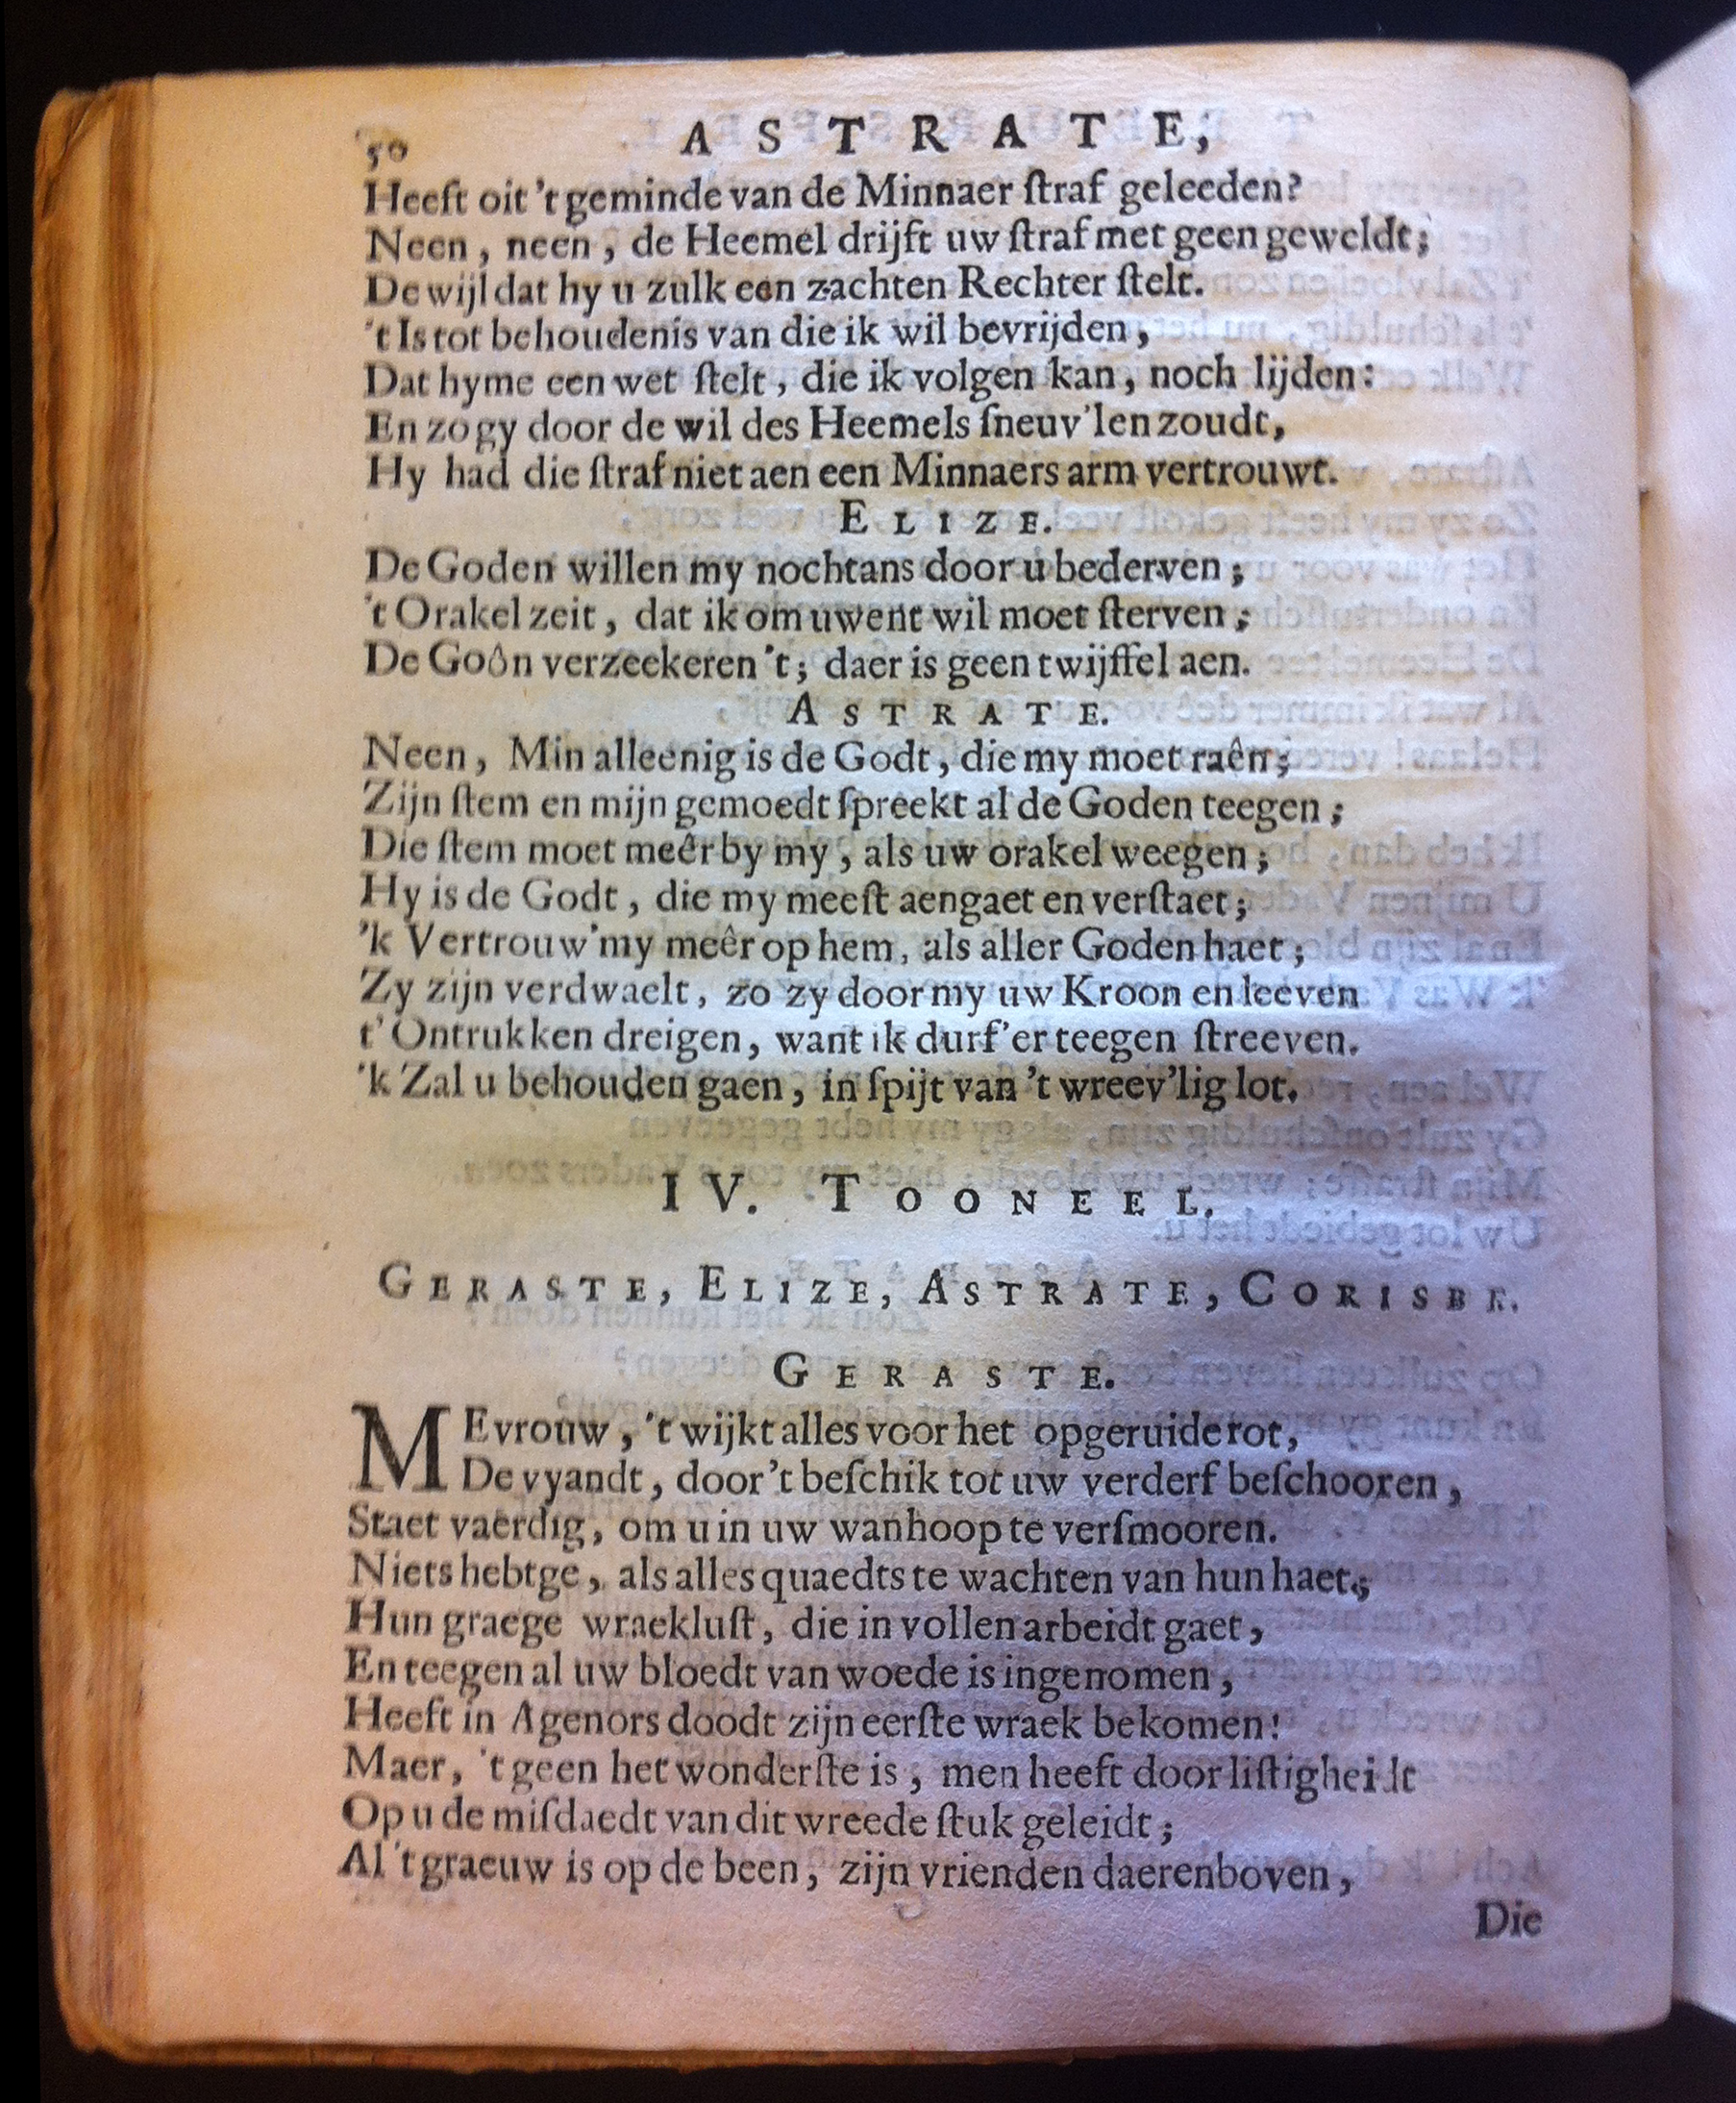 50 ASTRATE,
Heeft oit 't geminde van de Minnaer ſtraf geleeden?
Neen, neen, de Heemel drijft uw ſtraf met geen geweldt;
Dewijl dat hy u zulk een zachten Rechter ſtelt.
't Is tot behoudenis van die ik wil bevrijden,
Dat hy me een wet ſtelt, die ik volgen kan, noch lijden:
En zo gy door de wil des Heemels ſneuv'len zoudt,
Hy had die ſtraf niet aen een Minnaers arm vertrouwt.
ELIZE.
De Goden willen my nochtans door u bederven;
't Orakel zeit, dat ik om uwent wil moet ſterven;
De Goôn verzeekeren 't; daer is geen twijffel aen.
ASTRATE.
Neen, Min alleenig is de Godt, die my moet raên;
Zijn ſtem en mijn gemoedt ſpreekt al de Goden teegen;
Die ſtem moet meêr by my, als uw orakel weegen;
Hy is de Godt, die my meeſt aengaet en verſtaet;
'k Vertrouw' my meêr op hem, als aller Goden haet;
Zy zijn verdwaelt, zo zy door my uw Kroon en leeven
t' Ontrukken dreigen, want ik durf 'er teegen ſtreeven.
'k Zal u behouden gaen, in ſpijt van 't wreev'lig lot.
IV. TOONEEL.
GERASTE, ELIZE, ASTRATE, CORISBE.
GERASTE.
MEvrouw, 't wijkt alles voor het opgeruide rot,
De vyandt, door 't beſchik tot uw verderf beſchooren,
Staet vaerdig, om u in uw wanhoop te verſmooren.
Niets hebtge, als alles quaedts te wachten van hun haet;
Hun graege wraekluſt, die in vollen arbeidt gaet,
En teegen al uw bloedt van woede is ingenomen,
Heeft in Agenors doodt zijn eerſte wraek bekomen!
Maer, 't geen het wonderſte is, men heeft door liſtigheidt
Op u de miſdaedt van dit wreede ſtuk geleidt;
Al 't graeuw is op de been, zijn vrienden daerenboven,
Die